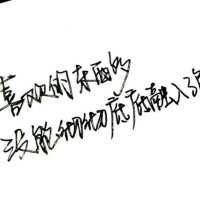 喜欢的东西
没能彻彻底底融入